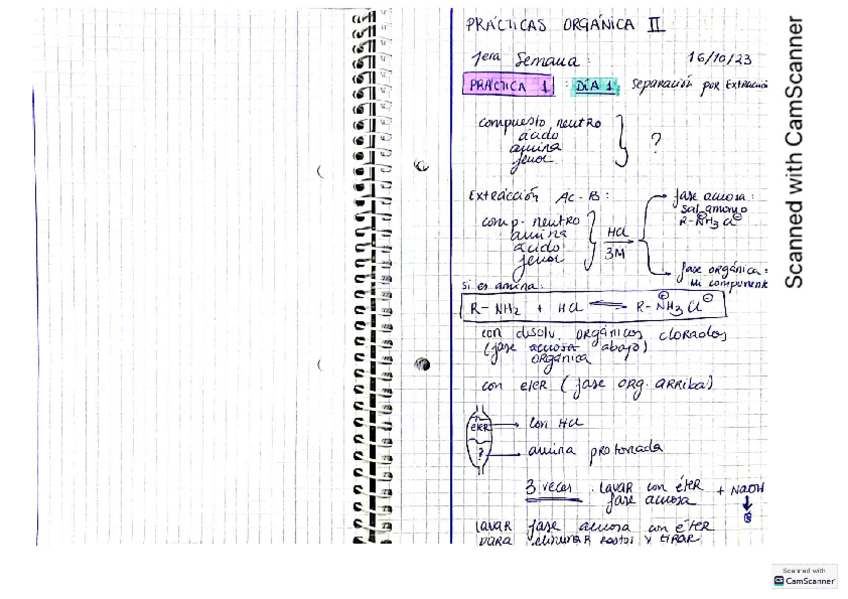 PRÁCTICAS ORGÁNICA II
1era Semana: 16/10/23
PRÁCTICA 1 : DÍA 1, separación por Extracción
compuesto neutro
ácido
amina
fenol
?
Extracción Ac-B:
comp. neutro
amina
ácido
fenol
HCl
3M
fase acuosa:
sal amonio
R-NH3 Cl
⊕ ⊖
fase orgánica:
mi componente
si es amina:
R-NH2 + HCl ⇌ R-NH3 Cl
⊕ ⊖
con disolv. orgánicos clorados
(fase acuosa abajo)
orgánica
con eter (fase org. arriba)
éter → con HCl
? → amina protonada
3 veces . lavar con éter + NaOH
fase acuosa
lavar fase acuosa con éter
para eliminar restos y tirar
Scanned with CamScanner
Scanned with
CamScanner